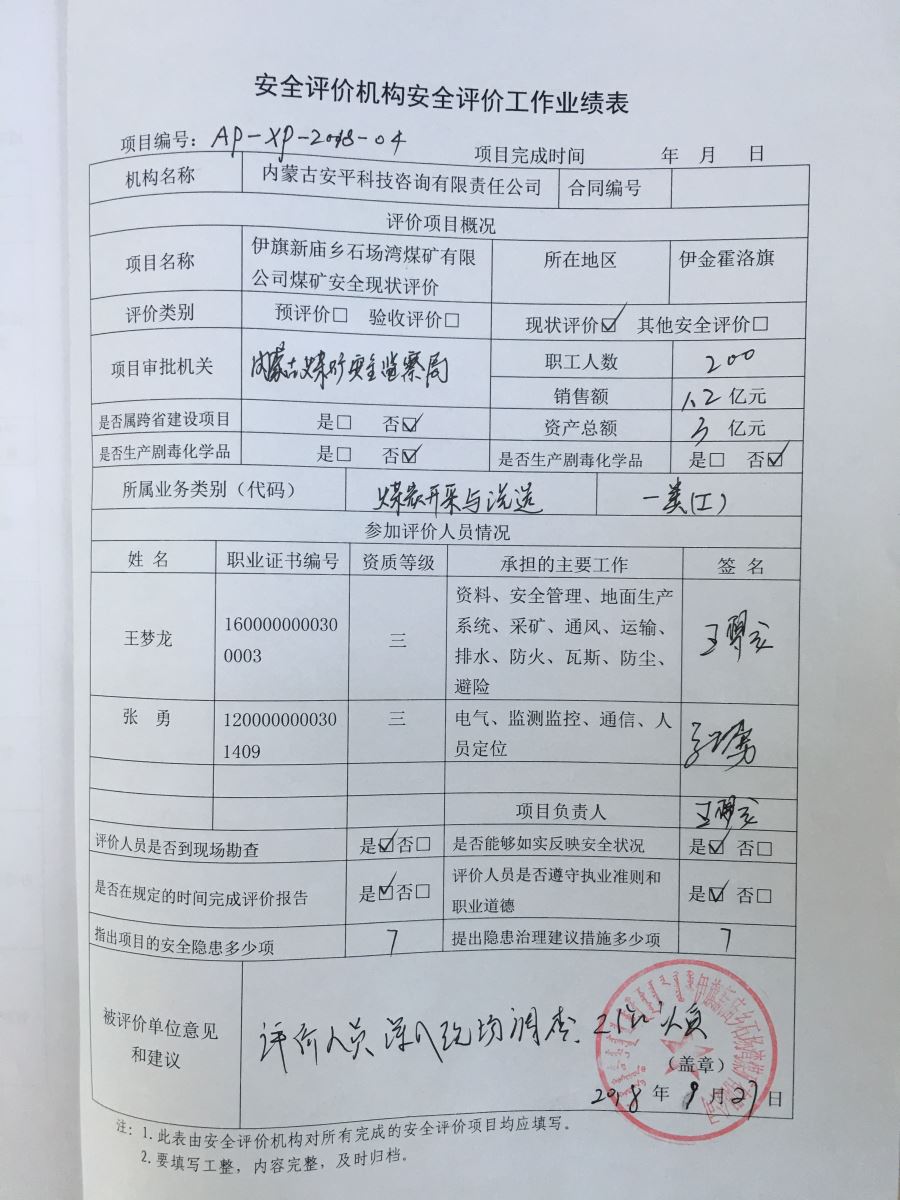 安全评价机构安全评价工作业绩表
项目编号: AP-XP-2018-04 项目完成时间 年 月 日
机构名称 内蒙古安平科技咨询有限责任公司 合同编号
评价项目概况
项目名称 伊旗新庙乡石场湾煤矿有限公司煤矿安全现状评价 所在地区 伊金霍洛旗
评价类别 预评价□ 验收评价□ 现状评价☑ 其他安全评价□
项目审批机关 内蒙古煤矿安全监察局 职工人数 200
销售额 1.2 亿元
是否属跨省建设项目 是□ 否☑ 资产总额 3 亿元
是否生产剧毒化学品 是□ 否☑ 是否生产剧毒化学品 是□ 否☑
所属业务类别（代码） 煤炭开采与洗选 一类(I)
参加评价人员情况
姓 名 职业证书编号 资质等级 承担的主要工作 签 名
王梦龙 1600000000300003 三 资料、安全管理、地面生产系统、采矿、通风、运输、排水、防火、瓦斯、防尘、避险 王梦龙
张 勇 1200000000301409 三 电气、监测监控、通信、人员定位 张勇
项目负责人 王梦龙
评价人员是否到现场勘查 是☑否□ 是否能够如实反映安全状况 是☑ 否□
是否在规定的时间完成评价报告 是☑否□ 评价人员是否遵守执业准则和职业道德 是☑ 否□
指出项目的安全隐患多少项 7 提出隐患治理建议措施多少项 7
被评价单位意见和建议 评价人员深入现场调查、工作认真
（盖章）
2018 年 9 月 27 日
注: 1.此表由安全评价机构对所有完成的安全评价项目均应填写。
2.要填写工整，内容完整，及时归档。